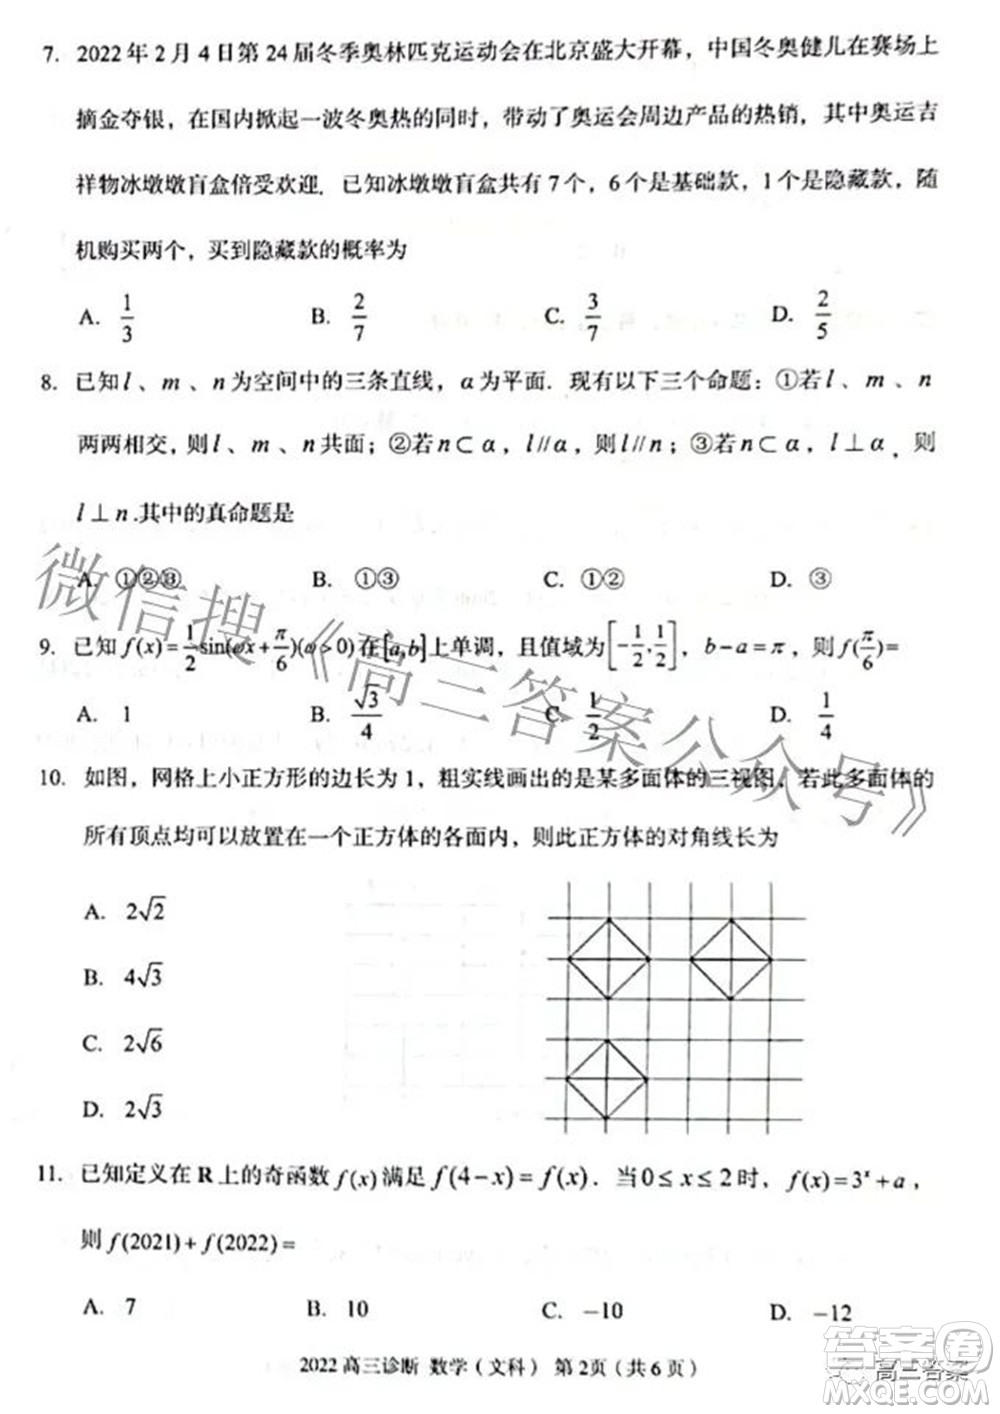 7. 2022 年 2 月 4 日第 24 届冬季奥林匹克运动会在北京盛大开幕，中国冬奥健儿在赛场上
摘金夺银，在国内掀起一波冬奥热的同时，带动了奥运会周边产品的热销，其中奥运吉
祥物冰墩墩盲盒倍受欢迎．已知冰墩墩盲盒共有 7 个，6 个是基础款，1 个是隐藏款，随
机购买两个，买到隐藏款的概率为
A. 1/3 B. 2/7 C. 3/7 D. 2/5
8. 已知 l 、 m 、 n 为空间中的三条直线，α 为平面．现有以下三个命题：①若 l 、 m 、 n
两两相交，则 l 、 m 、 n 共面；②若 n⊂α，l//α，则 l//n；③若 n⊂α，l⊥α，则
l⊥n .其中的真命题是
A. ①②③ B. ①③ C. ①② D. ③
9. 已知 f(x)=1/2 sin(ωx+π/6)(ω>0)在[a,b]上单调，且值域为[-1/2,1/2]，b-a=π，则 f(π/6)=
A. 1 B. √3/4 C. 1/2 D. 1/4
10. 如图，网格上小正方形的边长为 1，粗实线画出的是某多面体的三视图，若此多面体的
所有顶点均可以放置在一个正方体的各面内，则此正方体的对角线长为
A. 2√2
B. 4√3
C. 2√6
D. 2√3
11. 已知定义在 R 上的奇函数 f(x) 满足 f(4-x)=f(x)．当 0≤x≤2 时，f(x)=3ˣ+a，
则 f(2021)+f(2022)=
A. 7 B. 10 C. -10 D. -12
2022 高三诊断 数学（文科） 第 2页（共 6 页）
微信搜《高三答案公众号》
高三答案
答案圈
MXQE.COM